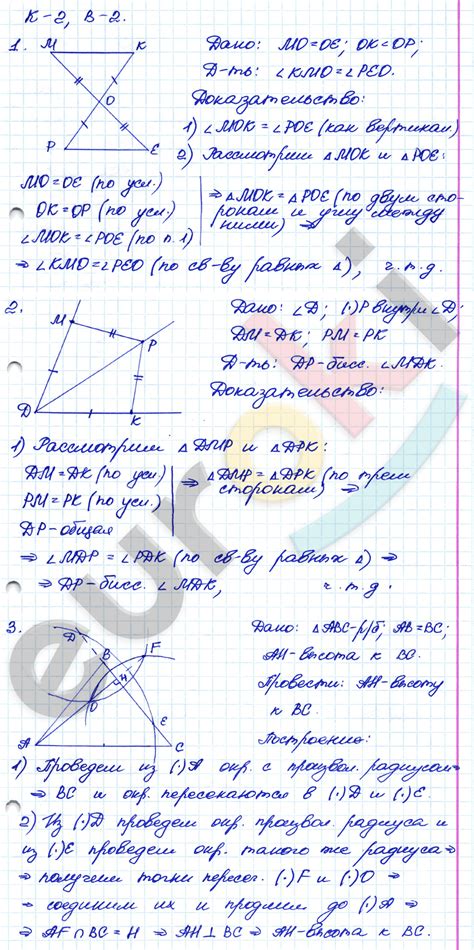 К-2, В-2.
1.
М К
О
Р Е
Дано: МО=ОЕ; ОК<ОР;
Д-ть: ∠КМО=∠РЕО.
Доказательство:
1) ∠МОК=∠РОЕ (как вертикал.)
2) Рассмотрим △МОК и △РОЕ:
МО=ОЕ (по усл.)
ОК=ОР (по усл.)
∠МОК=∠РОЕ (по п.1)
⇒ △МОК=△РОЕ (по двум сто-
ронам и углу между
ними) ⇒
⇒ ∠КМО=∠РЕО (по св-ву равных △), ч.т.д.
2.
М
Р
D К
Дано: ∠D; (·)Р внутри ∠D;
DM=DK; РМ=РК
Д-ть: DP-бисс. ∠MDK.
Доказательство:
1) Рассмотрим △DMP и △DPK:
DM=DK (по усл)
РМ=РК (по усл.)
DP-общая
⇒ △DMP=△DPK (по трем
сторонам) ⇒
⇒ ∠MDP=∠PDK (по св-ву равных △) ⇒
⇒ DP-бисс. ∠MDK, ч.т.д.
3.
D
B F
H
O
E
A C
Дано: △ABC-р/б; AB=BC;
AH-высота к BC.
Провести: AH-высоту
к BC.
Построение:
1) Проведем из (·)A окр. с произвол. радиусом
⇒ BC и окр. пересекаются в (·)D и (·)E.
2) Из (·)D проведем окр. произвол. радиуса и
из (·)E проведем окр. такого же радиуса ⇒
⇒ получим точки пересеч. (·)F и (·)O ⇒
⇒ соединим их и продлим до (·)A ⇒
⇒ AF∩BC=H ⇒ AH⊥BC ⇒ AH-высота к BC.
euroki